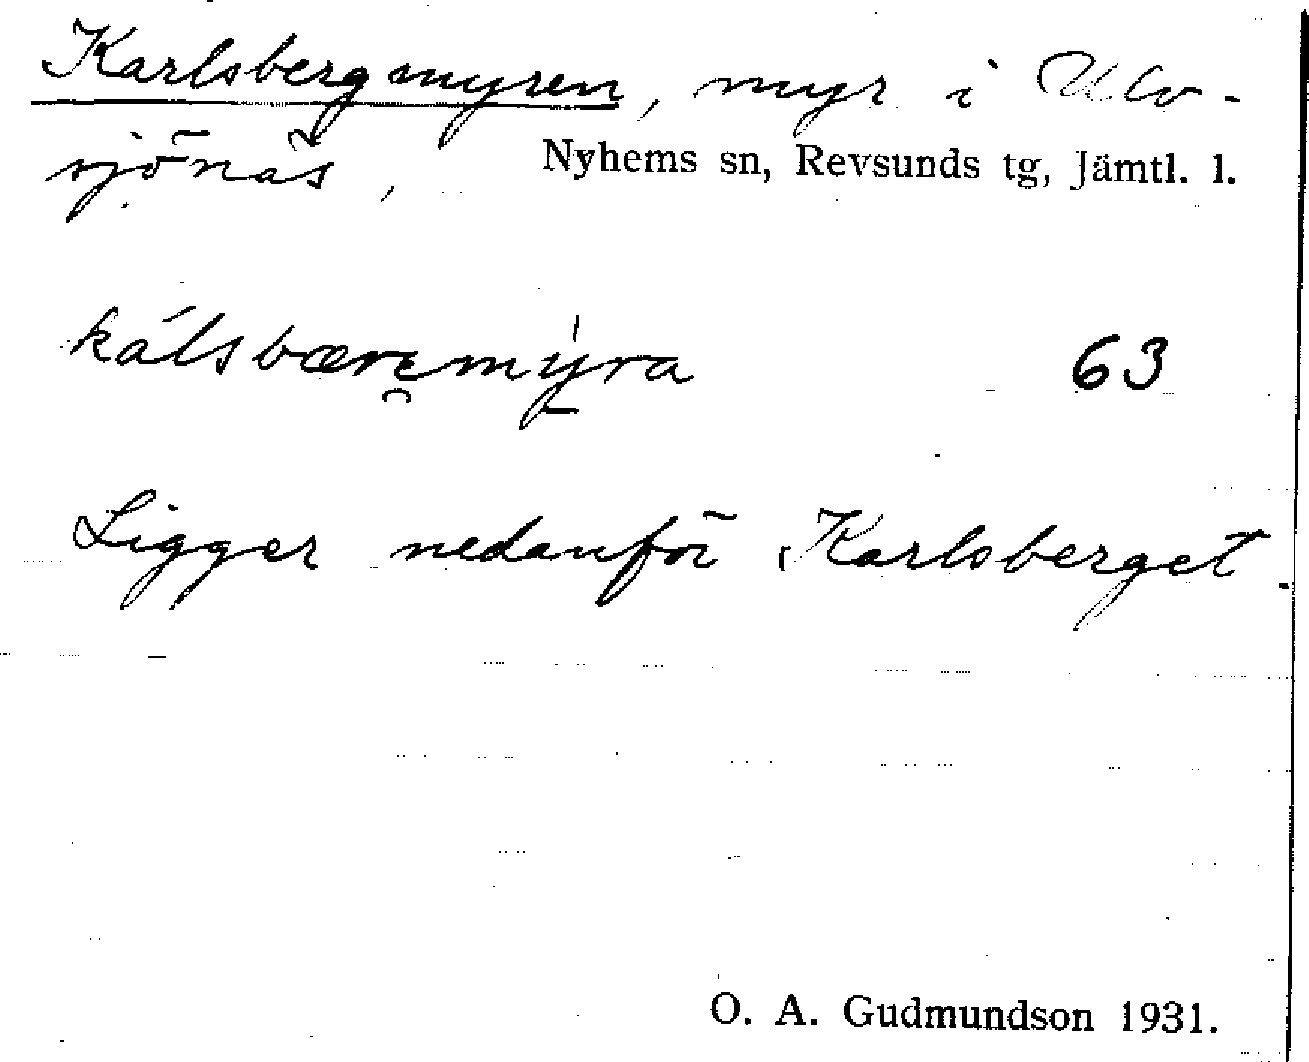 Karlsbergmyren, myr i Ulv-
sjönäs, Nyhems sn, Revsunds tg, Jämtl. l.
63
Ligger nedanför Karlsberget.
O. A. Gudmundson 1931.